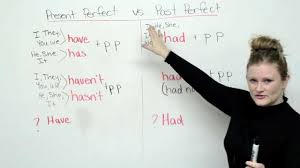 Present Perfect vs Past Perfect
I, They,
You, we
have
+ p p
He, She,
It
has
He, She,
had
+ p p
I, They
You, we
haven't
+ p p
He, She,
It
hasn't
(had no
? Have
? Had